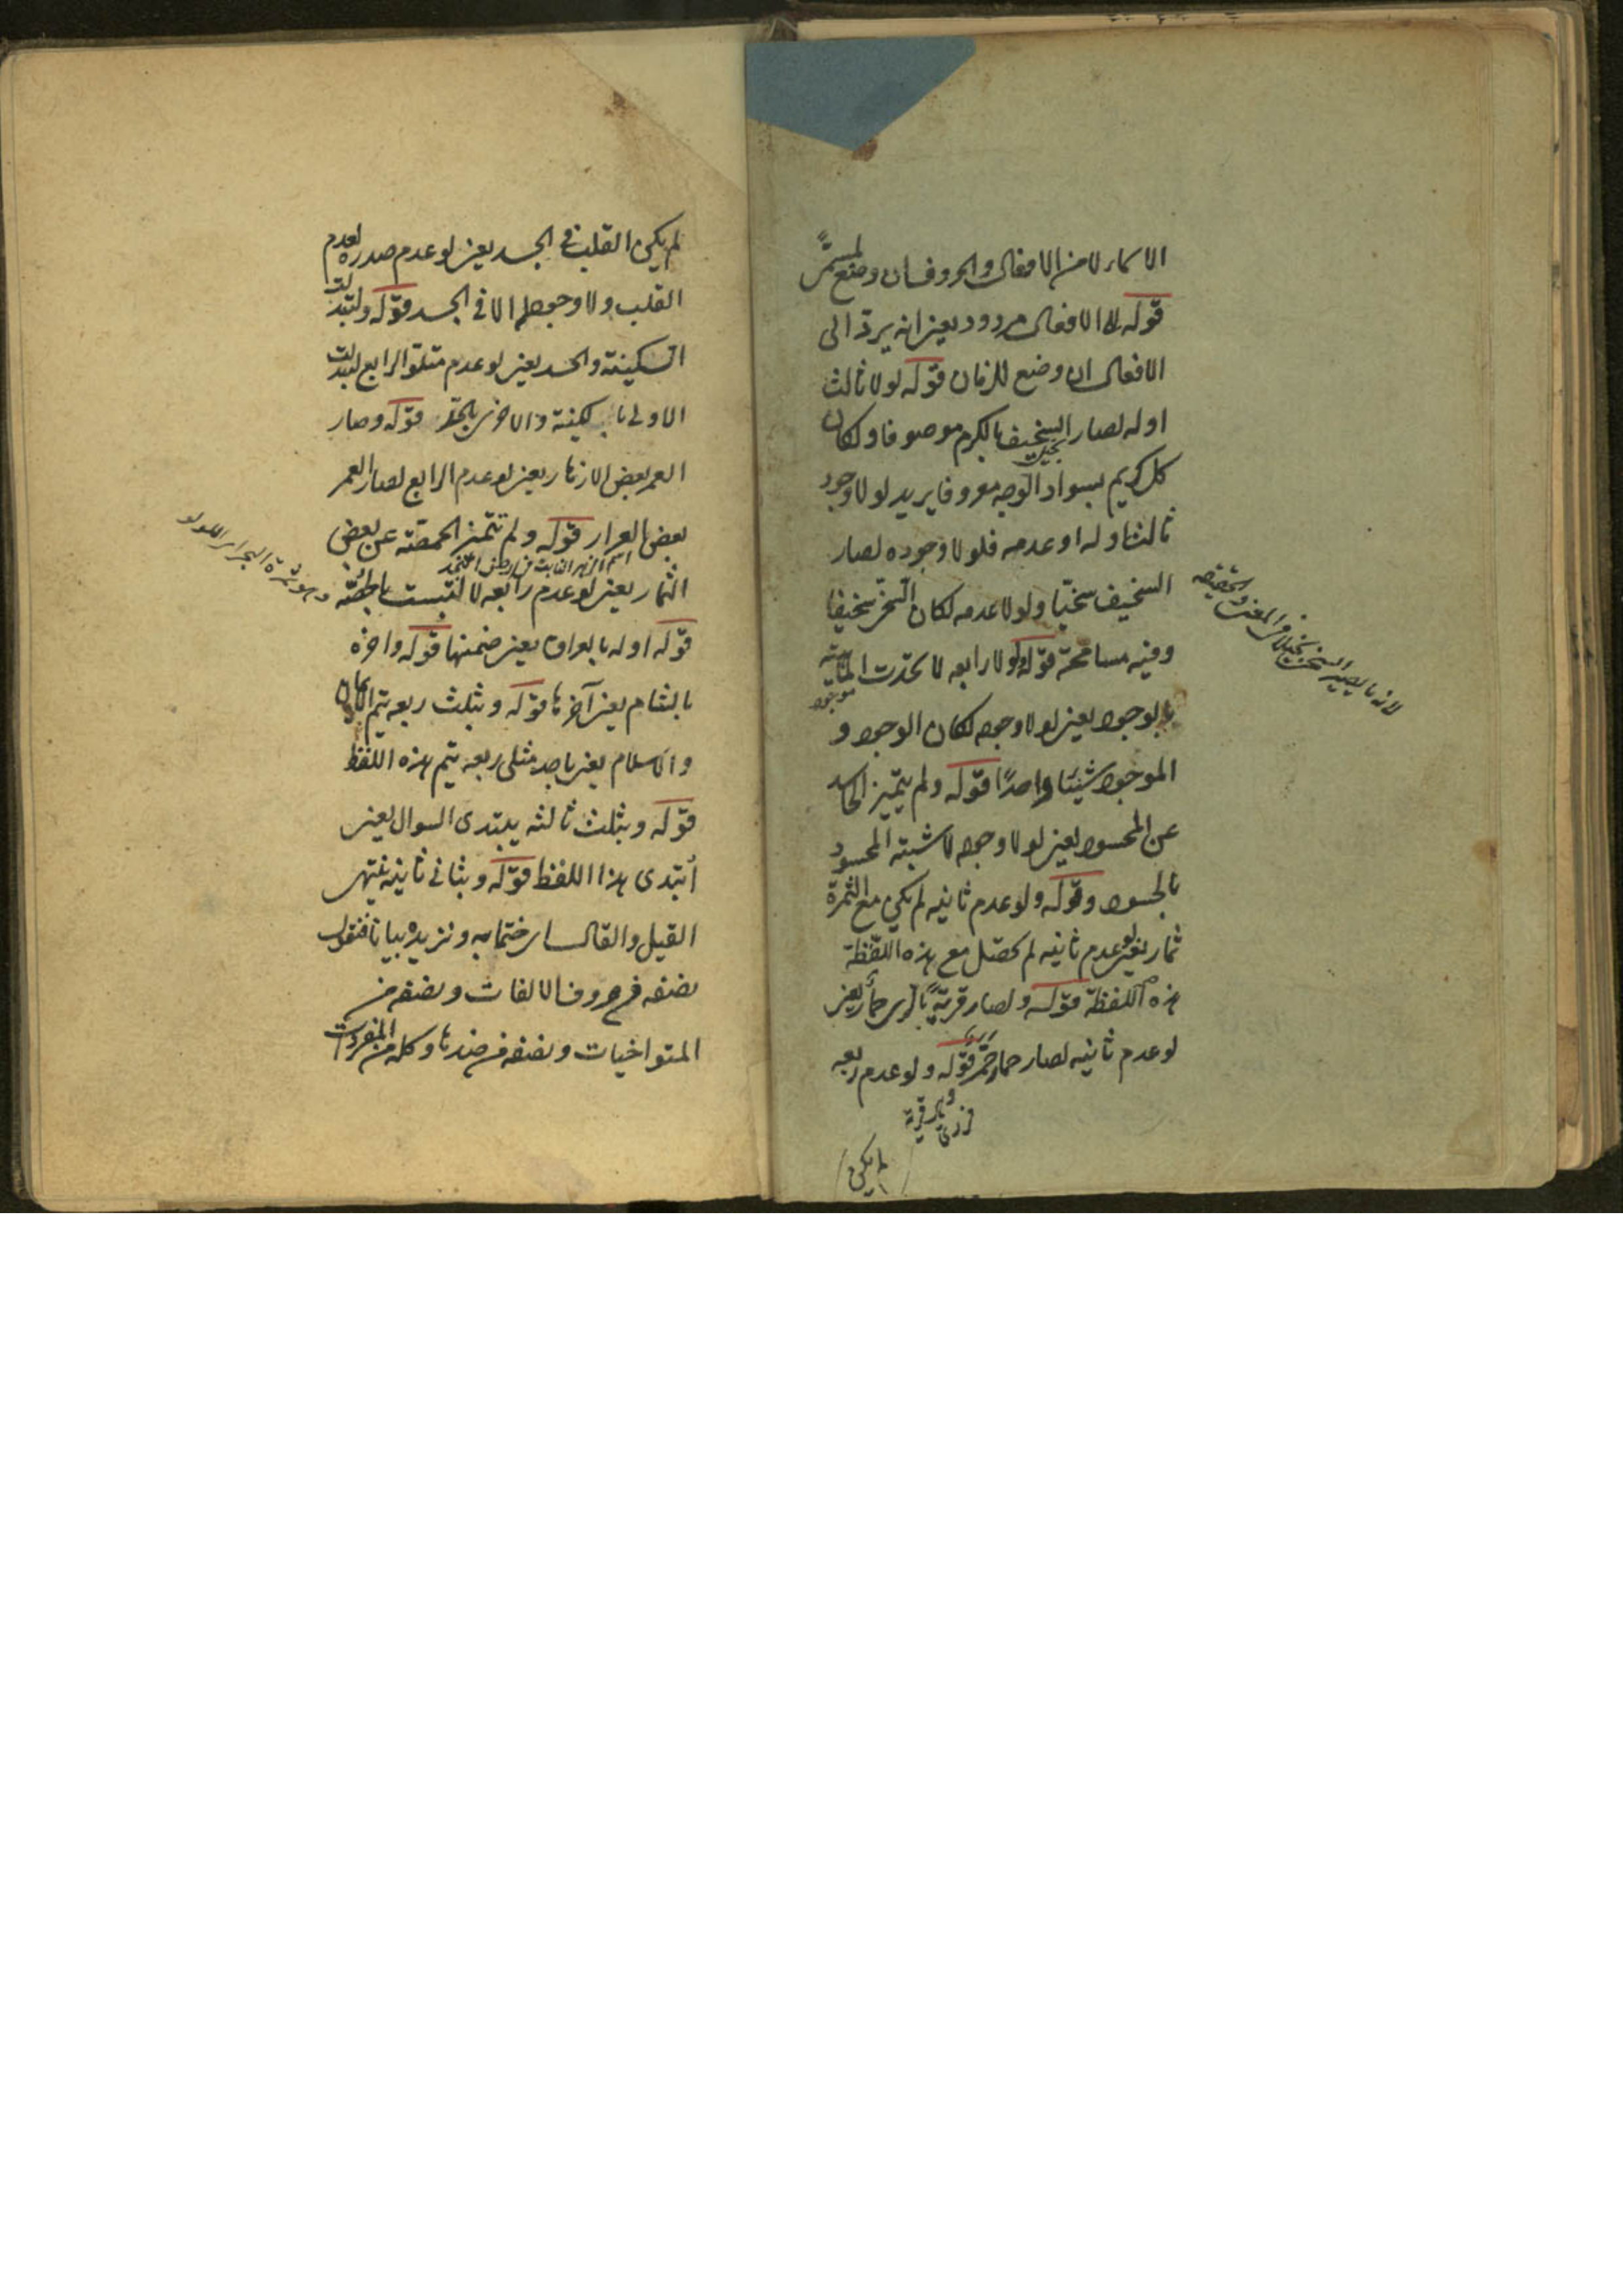 الاسماء لا من الافعال والحروف ان وضع لمستمر
قوله الى الافعال مردود يعنى انه يردّ الى
الافعال ان وضع للزمان قوله لولا ثالث
اوله لصار السخيف بالكرم موصوفا ولكان
كل كريم بسواد الوجه معروفا يريد لولا وجود
ثالث اوله او عدمه فلولا وجوده لصار
السخيف سخيّا ولولا عدمه لكان السخىّ سخيفا
وفيه مسامحة قوله ولولا رابعه لاتحدت الماهية
بالوجود يعنى لولا وجوده لكان الوجود و
الموجود شيئا واحدًا قوله ولم يتميز الحاسد
عن المحسود يعنى لولا وجوده لاشتبه المحسود
بالحسود وقوله ولو عدم ثانيه لم يكن مع الثمرة
ثمار يعنى لو عدم ثانيه لم تحصل مع هذه اللفظة
هذه اللفظة قوله ولصار قرية بأرى حمار يعنى
لو عدم ثانيه لصار حمار قوله ولو عدم ربعه
لم يكن
لم يكن القلب فى الجسد يعنى لو عدم صدره لعدم
القلب ولا وجود له الا فى الجسد قوله ولتبدلت
السكينة والحسد يعنى لو عدم متلوّ الرابع لتبدلت
الاولى بالسكينة والاخرى بالحقد قوله وصار
العمر بعض الازهار يعنى لو عدم الرابع لصار العمر
بعض العرار قوله ولم تتميز الحمصة عن بعض
الثمار يعنى لو عدم رابعه لالتبست
قوله اوله بالعراق يعنى ضمنها قوله واخره
بالشام يعنى آخرها قوله وبثلث ربعه يتم الايمان
والاسلام يعنى باحد مثلى ربعه يتم هذه اللفظ
قوله وبثلث ثالثه يبتدى السوال يعنى
ابتدى هذا اللفظ قوله وبثانى ثانيه ينتهى
القيل والقال اى ختما به ونزيده بيانا فنقول
نصفه من حروف الالفات ونصفه من
المتواخيات ونصفه من ضدها وكله من المفردات